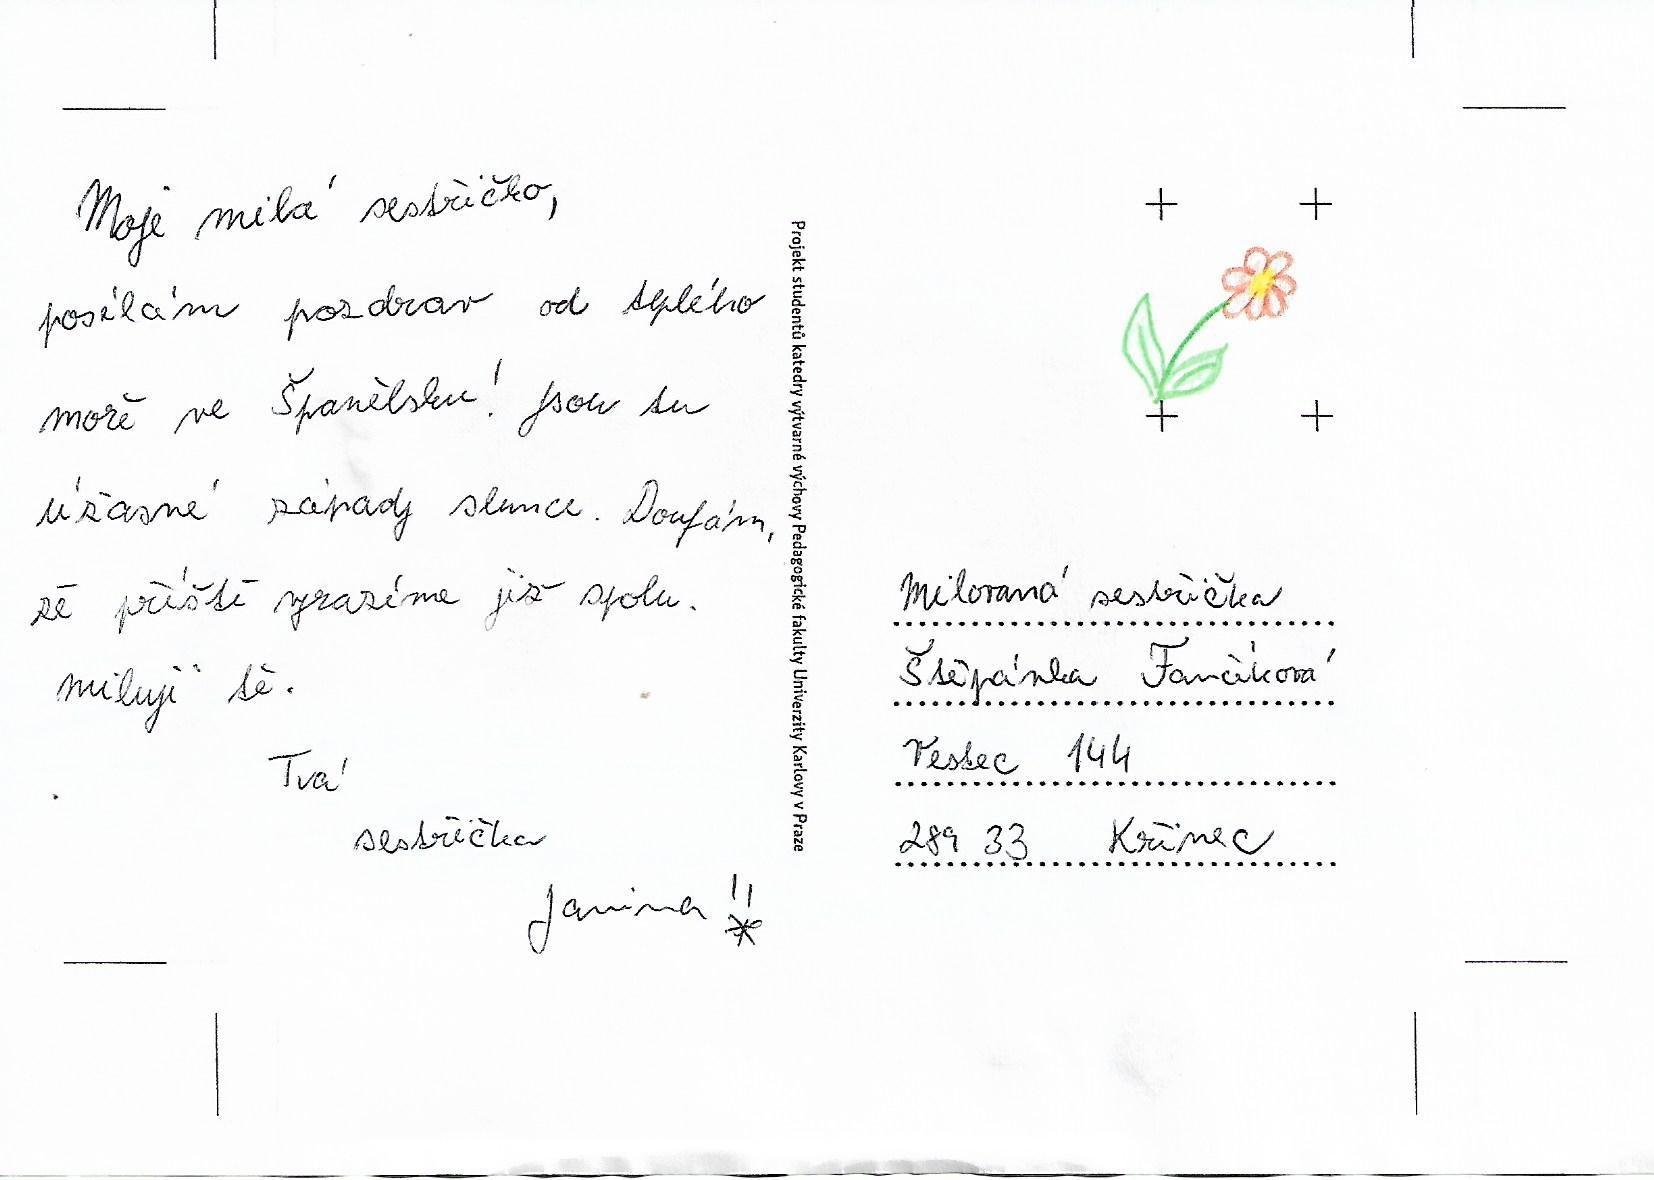 Moje milá sestřičko,
posílám pozdrav od teplého
moře ve Španělsku! Jsou tu
úžasné západy slunce. Doufám,
že příště vyrazíme již spolu.
Miluji tě.
Tvá
sestřička
Janina!!
Projekt studentů katedry výtvarné výchovy Pedagogické fakulty Univerzity Karlovy v Praze
Milovaná sestřička
Štěpánka Fančíková
Vestec 144
289 33 Křinec